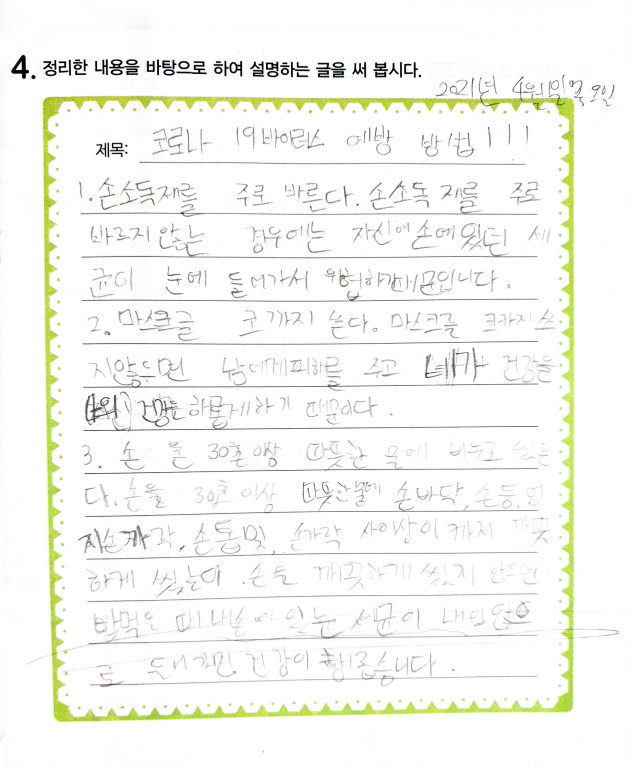 4. 정리한 내용을 바탕으로 하여 설명하는 글을 써 봅시다.
2021년 4월
제목: 코로나 19바이러스 예방 방법!!!
1.손소독재를 주로 바른다. 손소독재를 주로
바르지않는 경우에는 자신에 손에 있던 세
균이 눈에 들어가서 위험하기때문입니다.
2. 마스크를 코까지 쓴다. 마스크를 코까지 쓰
지않으면 남에게피해를 주고 네가 건강을
하기 때문이다.
3. 손을 30초이상 따뜻한 물에 비누로 씻는
다. 손을 30초 이상 따뜻한물에 손바닥, 손등, 엄
지손가락, 손톱밑, 손가락 사이사이까지 깨끗
하게 씻는다. 손을 깨끗하게 씻지 않으면
밥먹을 때 내손에 있는 세균이 내입안으
로 들어가면 건강이 해롭습니다.